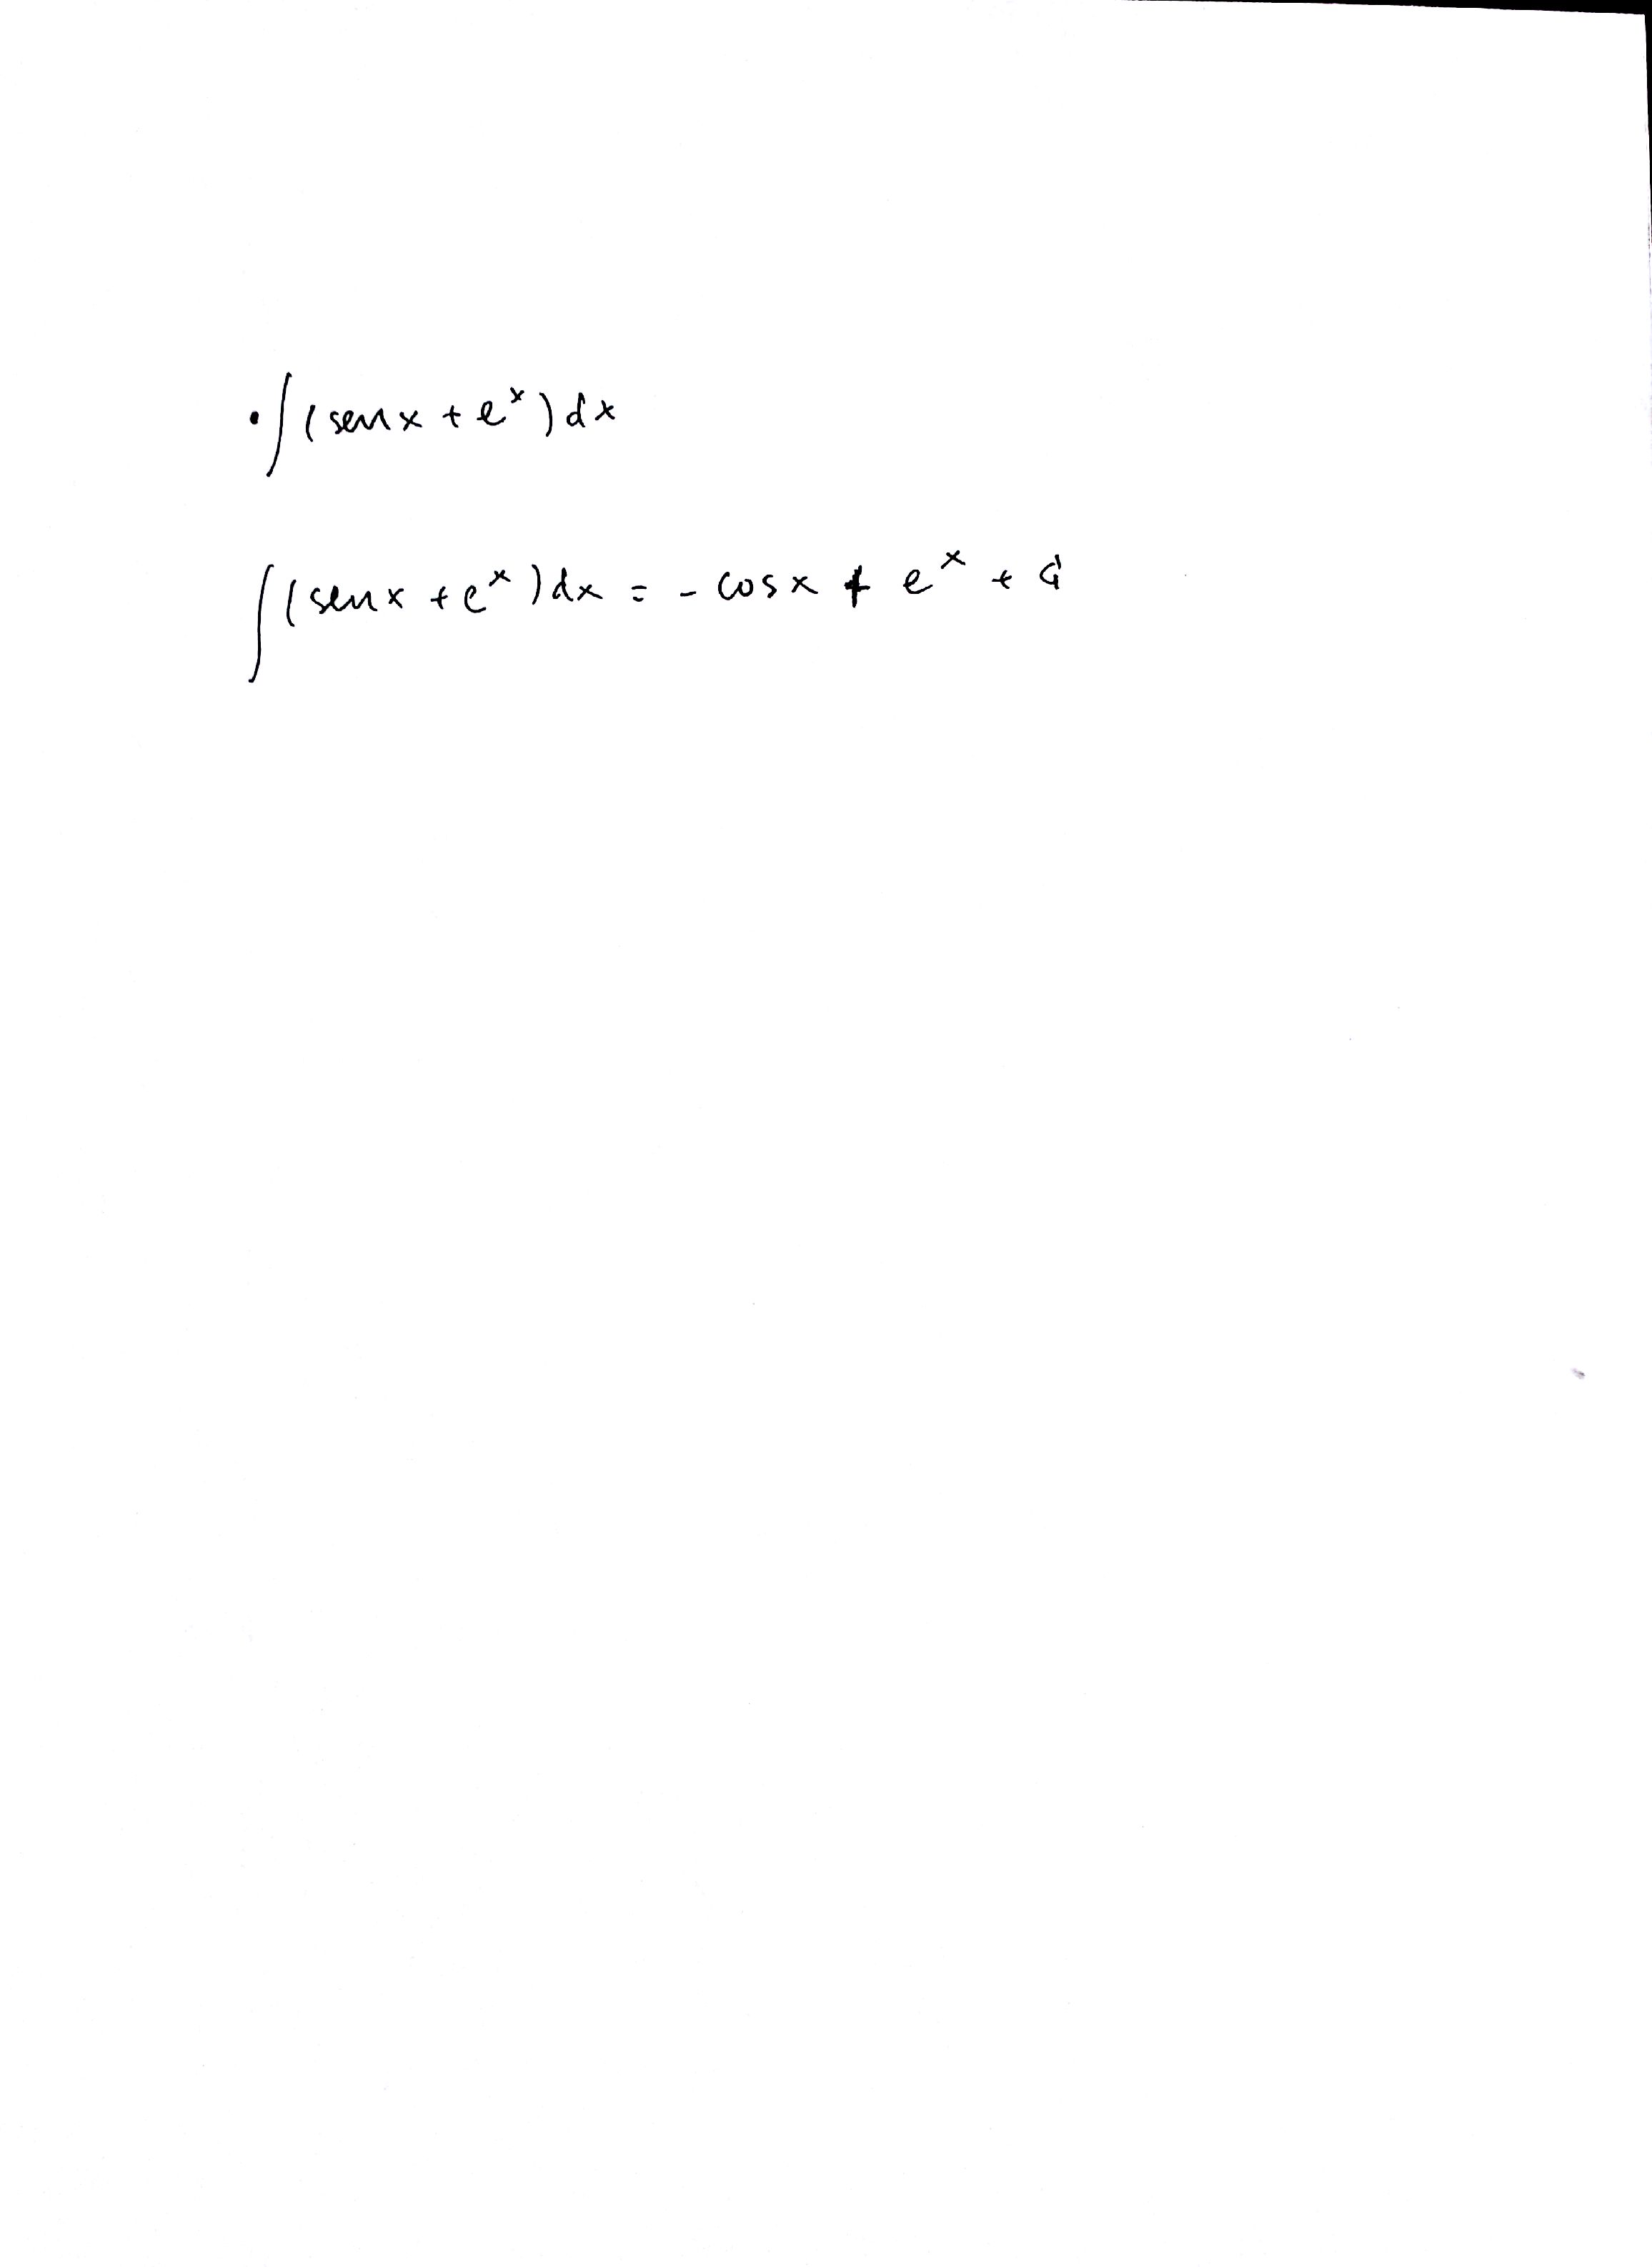 • ∫(sen x + e^x) dx
∫(sen x + e^x) dx = - cos x + e^x + C